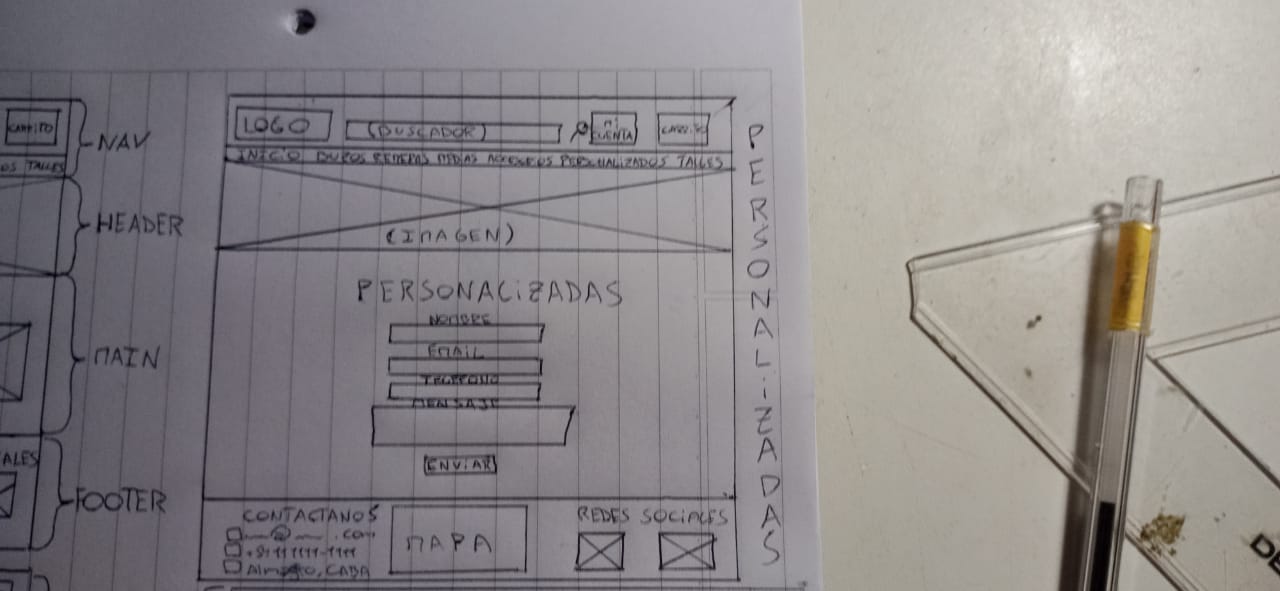 CARRITO
OS TALLES
NAV
HEADER
MAIN
ALES
FOOTER
LOGO
(BUSCADOR)
MI
CUENTA
CARRITO
INICIO BUZOS REMERAS MEDIAS ACCESORIOS PERSONALIZADOS TALLES
(IMAGEN)
PERSONALIZADAS
NOMBRE
EMAIL
TELEFONO
MENSAJE
ENVIAR
CONTACTANOS
@ .com
Almagro, CABA
MAPA
REDES SOCIALES
PERSONALIZADAS
DE